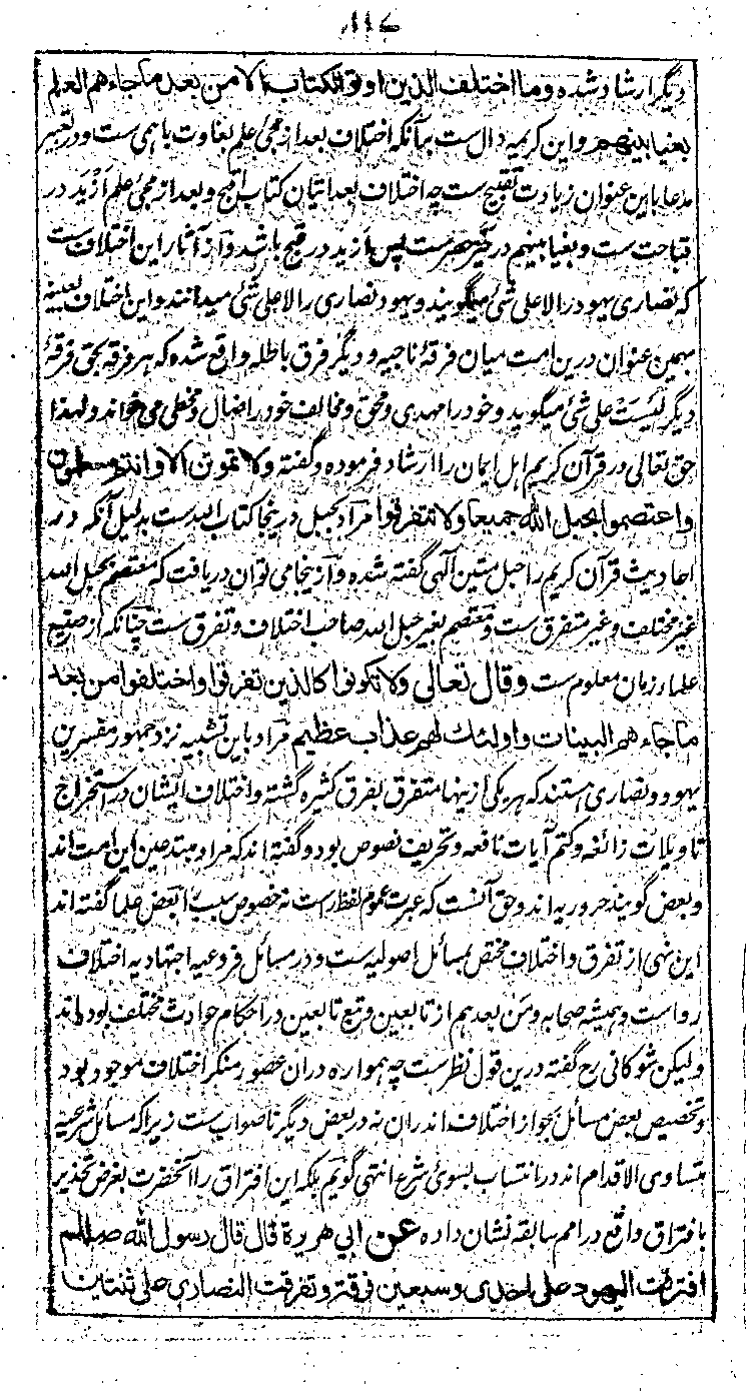 ۱۱۷
دیگر ارشاد شده وما اختلف الذین اوتوا الکتاب الا من بعد ما جاءهم العلم
بغیا بینهم واین کریمه دال ست برآنکه اختلاف بعد از مجئ علم بغاوت باهمی ست ودر تعبیر
مدعا باین عنوان زیادت تقبیح ست چه اختلاف بعد اتیان کتاب اقبح وبعد از مجی علم ازید در
قباحت ست وبغیا بینهم در حیز حصرست پس ازید در قبح باشد واز آثار این اختلاف ست
که نصاری یهود را لا علی شئ میگویند ویهود نصاری را لا علی شئی میدانند واین اختلاف بعینه
بهمین عنوان درین امت میان فرقهٔ ناجیه ودیگر فرق باطله واقع شده که هر فرقه بحق فرقهٔ
دیگر لیست علی شئ میگوید وخود را مهدی ومحق ومخالف خود را ضال ومخطی می خواند ولهذا
حق تعالی در قرآن کریم اهل ایمان را ارشاد فرموده وگفته ولا تموتن الا وانتم مسلمون
واعتصموا بحبل الله جمیعا ولا تتفرقوا مراد بحبل درینجا کتاب الله ست بدلیل آنکه در
احادیث قرآن کریم را حبل متین آلهی گفته شده وازینجا می توان دریافت که معتصم بحبل الله
غیر مختلف وغیر متفرق ست ومعتصم بغیر حبل الله صاحب اختلاف وتفرق ست چنانکه از صنیع
علماء زمان معلوم ست وقال تعالی ولا تکونوا کالذین تفرقوا واختلفوا من بعد
ما جاءهم البینات واولئك لهم عذاب عظیم مراد باین تشبیه نزد جمهور مفسرین
یهود ونصاری هستند که هر یکی ازینها متفرق بفرق کثیره گشته واختلاف ایشان در استخراج
تاویلات زائغه وکتم آیات نافعه وتحریف نصوص بود وگفته اند که مراد مبتدعین این امت اند
وبعض گویند حروریه اند وحق آنست که عبرت بعموم لفظ ست نه خصوص سبب بعض علما گفته اند
این نهی از تفرق واختلاف مختص بمسائل اصولیه ست ودر مسائل فروعیه اجتهادیه اختلاف
رواست وهمیشه صحابه ومن بعدهم از تابعین وتبع تابعین در احکام حوادث مختلف بوده اند
ولیکن شوکانی رح گفته درین قول نظرست چه همواره دران عصور منکر اختلاف موجود بود
وتخصیص بعض مسائل بجواز اختلاف اندران نه در بعض دیگر ناصواب ست زیرا که مسائل شرعیه
متساوی الاقدام اند در انتساب بسوئ شرع انتهی گویم بلکه این افتراق را آنحضرت بغرض تحذیر
بافتراق واقع در امم سابقه نشان داده عن ابی هریرة قال قال رسول الله صللم
افترقت الیهود علی احدی وسبعین فرقة وتفرقت النصاری علی ثنتین